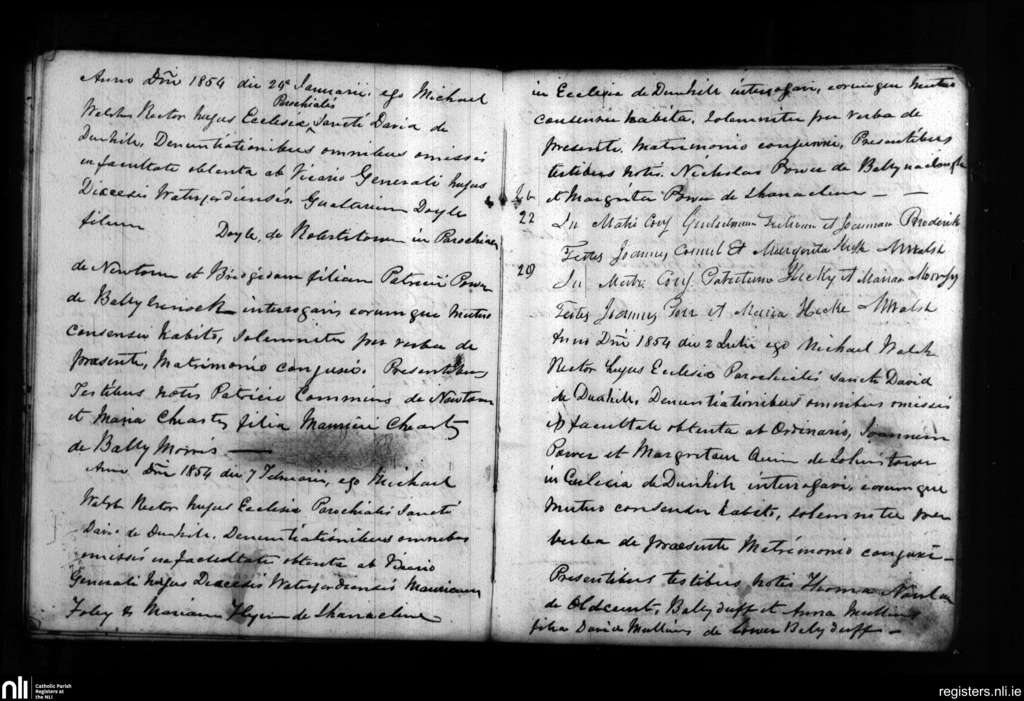 Anno Dñi 1854 die 24ª Januarii, ego Michael
Parochialis
Walsh Rector hujus Ecclesia, Sancti David de
Dunhill, Denuntiationibus omnibus omissis
ex facultate obtenta ab Vicario Generali hujus
Diocesis Waterfordiensis, Doyle
filium Doyle, de Robertstown in Parochia
de Newtown et Brigidam filiam Patricii Power
de Bally interrogavi eorumque mutuo
consensu habito, solemniter per verba de
praesente, Matrimonio conjunxi. Presentibus
Testibus notis Patricio Commins de Newtown
et Maria Chearty filia Mauricii Chearty
de Bally Morris —
Anno Dñi 1854 die 7 Februarii, ego Michael
Walsh Rector hujus Ecclesia Parochialis Sancti
David de Dunhill. Denuntiationibus omnibus
omissis ex facultate obtenta ab Vicario
Generali hujus Diocesis Waterfordiensis Mauricium
Foley & Mariam de Shanaclune
in Ecclesia de Dunhill interrogavi, eorumque mutuo
consensu habito, solemniter per verba de
presente. Matrimonio conjunxi, Presentibus
testibus notis. Nicholas Power de
et Margrita Power de Shanaclune —
Feb
22 In Matri Conj et Joannam Broderick
Testes Joannes et Margarita MWalsh
29 In Matri Conj Patritium Hicky et Mariam Morrissy
Testes Joannes et Maria Hicke MWalsh
Anno Dñi 1854 die 2 Julii ego Michael Walsh
Rector hujus Ecclesia Parochialis sancti David
de Dunhill. Denuntiationibus omnibus omissis
ex facultate obtenta ab Ordinario, Joannem
Power et Margretam de Johnstown
in Ecclesia de Dunhill interrogavi, eorumque
mutuo consensu habito, solemniter per
verba de praesente Matrimonio conjunxi —
Presentibus testibus notis Thoma
de Oldcourt, Ballyduff et Anna Mullins
filia David Mullins de Lower Ballyduff —
nli Catholic Parish
Registers at
the NLI
registers.nli.ie